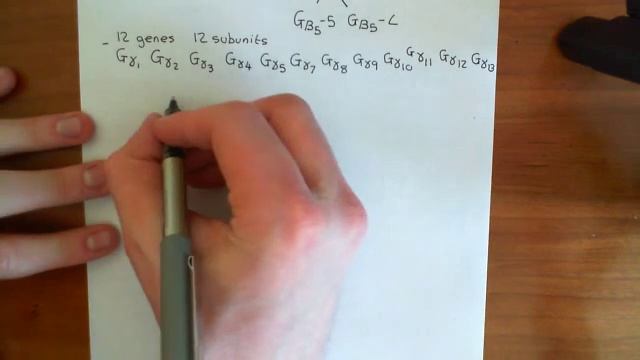 Gβ5-S Gβ5-L
- 12 genes 12 subunits
Gγ1 Gγ2 Gγ3 Gγ4 Gγ5 Gγ7 Gγ8 Gγ9 Gγ10 Gγ11 Gγ12 Gγ13